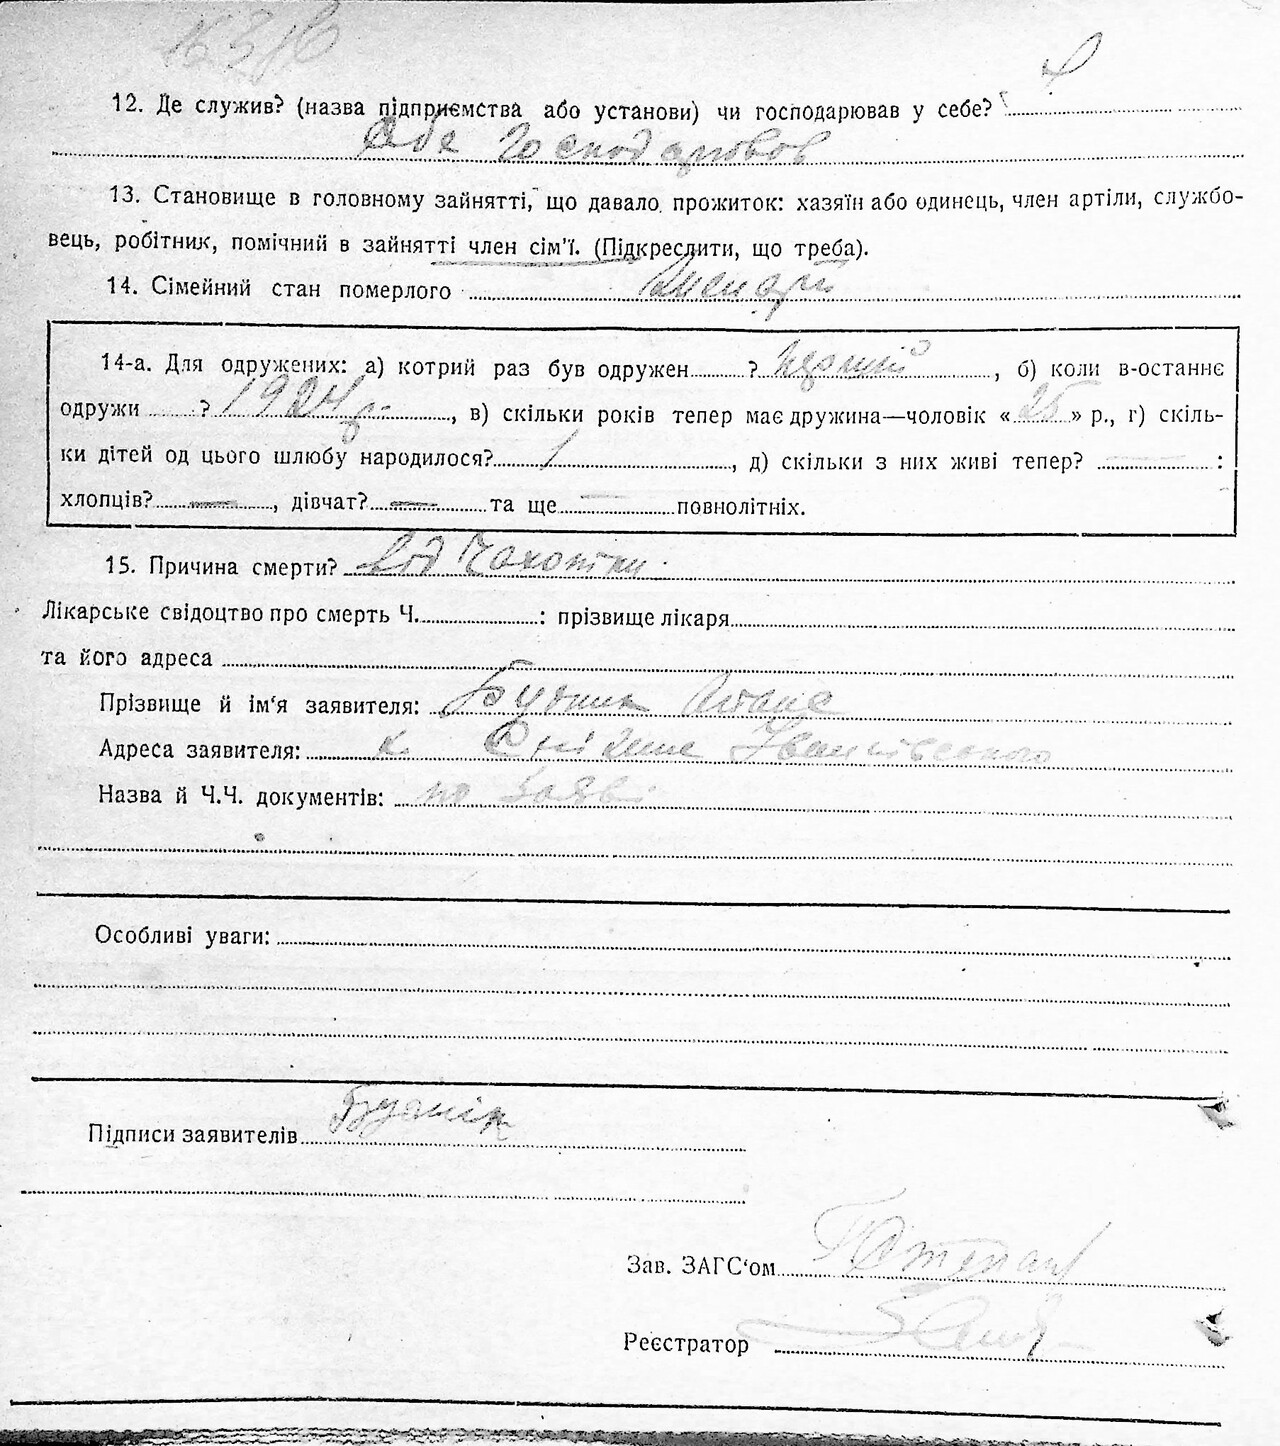 12. Де служив? (назва підприємства або установи) чи господарював у себе?
себе Господарював
13. Становище в головному зайнятті, що давало прожиток: хазяїн або одинець, член артіли, службо-
вець, робітник, помічний в зайнятті член сім'ї. (Підкреслити, що треба).
14. Сімейний стан померлого
14-а. Для одружених: а) котрий раз був одружен ? перший , б) коли в-останнє
одружи ? 1924 р. , в) скільки років тепер має дружина—чоловік « 25 » р., г) скіль-
ки дітей од цього шлюбу народилося? 1 , д) скільки з них живі тепер? — :
хлопців? — , дівчат? — та ще — повнолітніх.
15. Причина смерти? від
Лікарське свідоцтво про смерть Ч. : прізвище лікаря
та його адреса
Прізвище й ім'я заявителя: Будник
Адреса заявителя:
Назва й Ч.Ч. документів: по заяві
Особливі уваги:
Підписи заявителів Буднік
Зав. ЗАГС'ом
Реєстратор